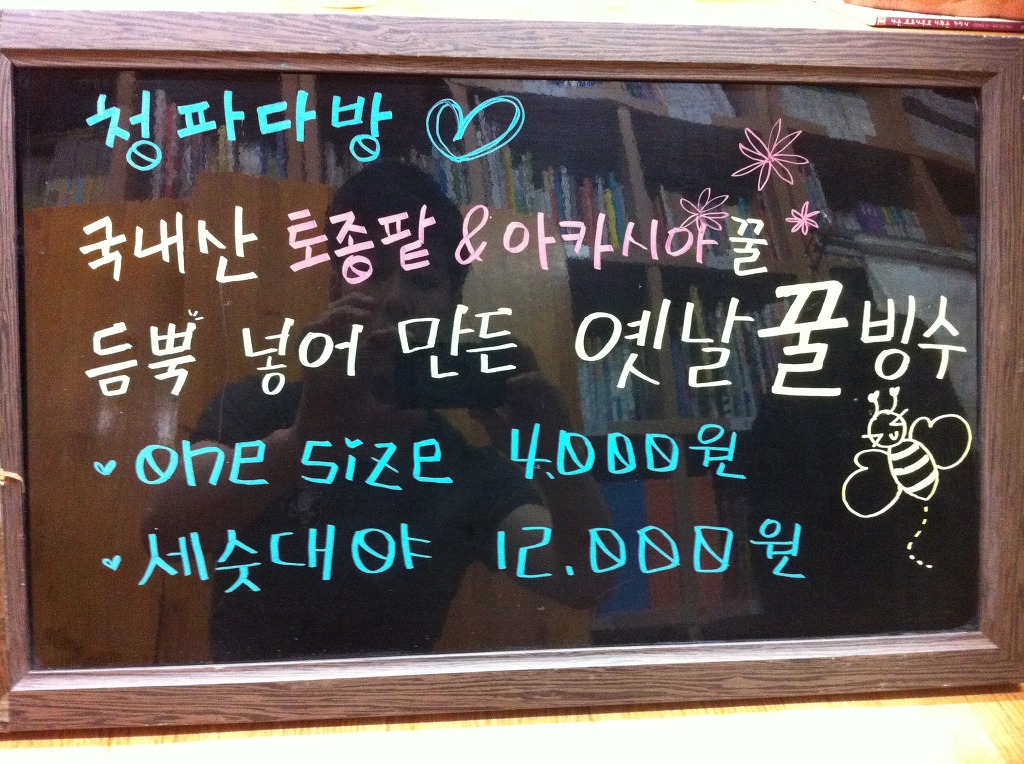 청파다방
국내산 토종팥 & 아카시아 꿀
듬뿍 넣어 만든 옛날 꿀빙수
one size 4.000원
세숫대야 12.000원